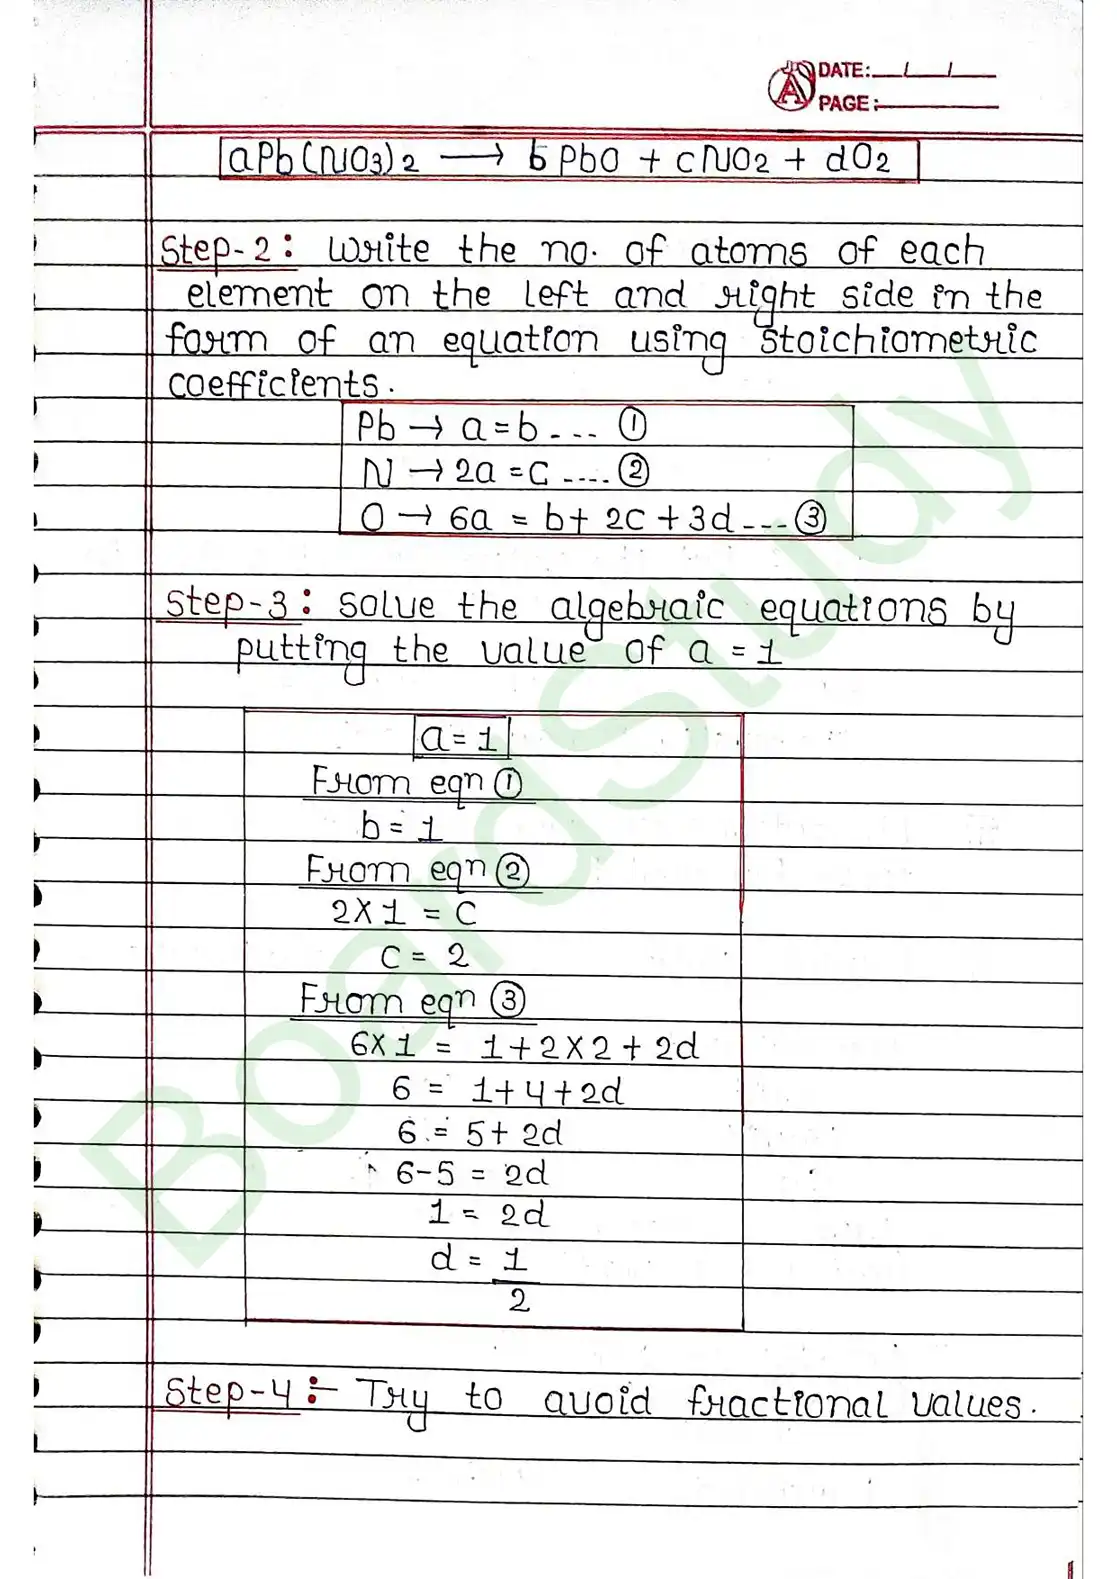 DATE: / /
PAGE:
aPb(NO3)2 → bPbO + cNO2 + dO2
Step-2: Write the no. of atoms of each
element on the left and right side in the
form of an equation using stoichiometric
coefficients.
Pb → a = b --- ①
N → 2a = C ---- ②
O → 6a = b + 2c + 3d --- ③
Step-3: Solve the algebraic equations by
putting the value of a = 1
a = 1
From eqn ①
b = 1
From eqn ②
2X1 = C
C = 2
From eqn ③
6X1 = 1+2X2+2d
6 = 1+4+2d
6 = 5+2d
6-5 = 2d
1 = 2d
d = 1
2
Step-4:- Try to avoid fractional values.
BoardStudy